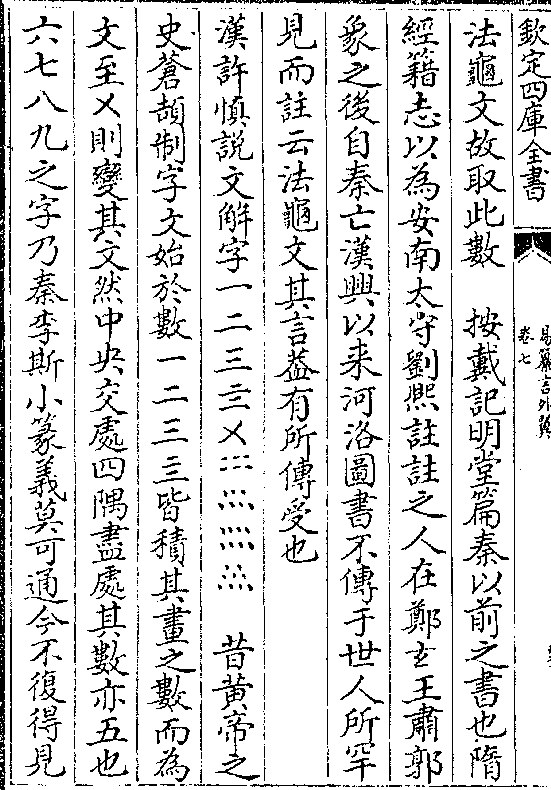 欽定四庫全書
易
言外翼
卷七
法龜文故取此數　按戴記明堂篇秦以前之書也隋
經籍志以為安南太守劉熙註註之人在鄭玄王肅郭
象之後自秦亡漢興以来河洛圖書不傳于世人所罕
見而註云法龜文其言葢有所傳受也
漢許慎說文解字一二三亖㐅　昔黄帝之
史蒼頡制字文始於數一二三亖皆積其畫之數而為
文至㐅則變其文然中央交處四隅盡處其數亦五也
六七八九之字乃秦李斯小篆義莫可通今不復得見